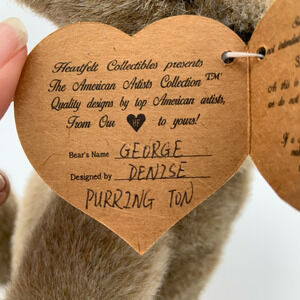 Heartfelt Collectibles presents
The American Artists Collection™
Quality designs by top American artists,
From Our HF to yours!
Bear's Name GEORGE
Designed by DENISE
PURRING TON